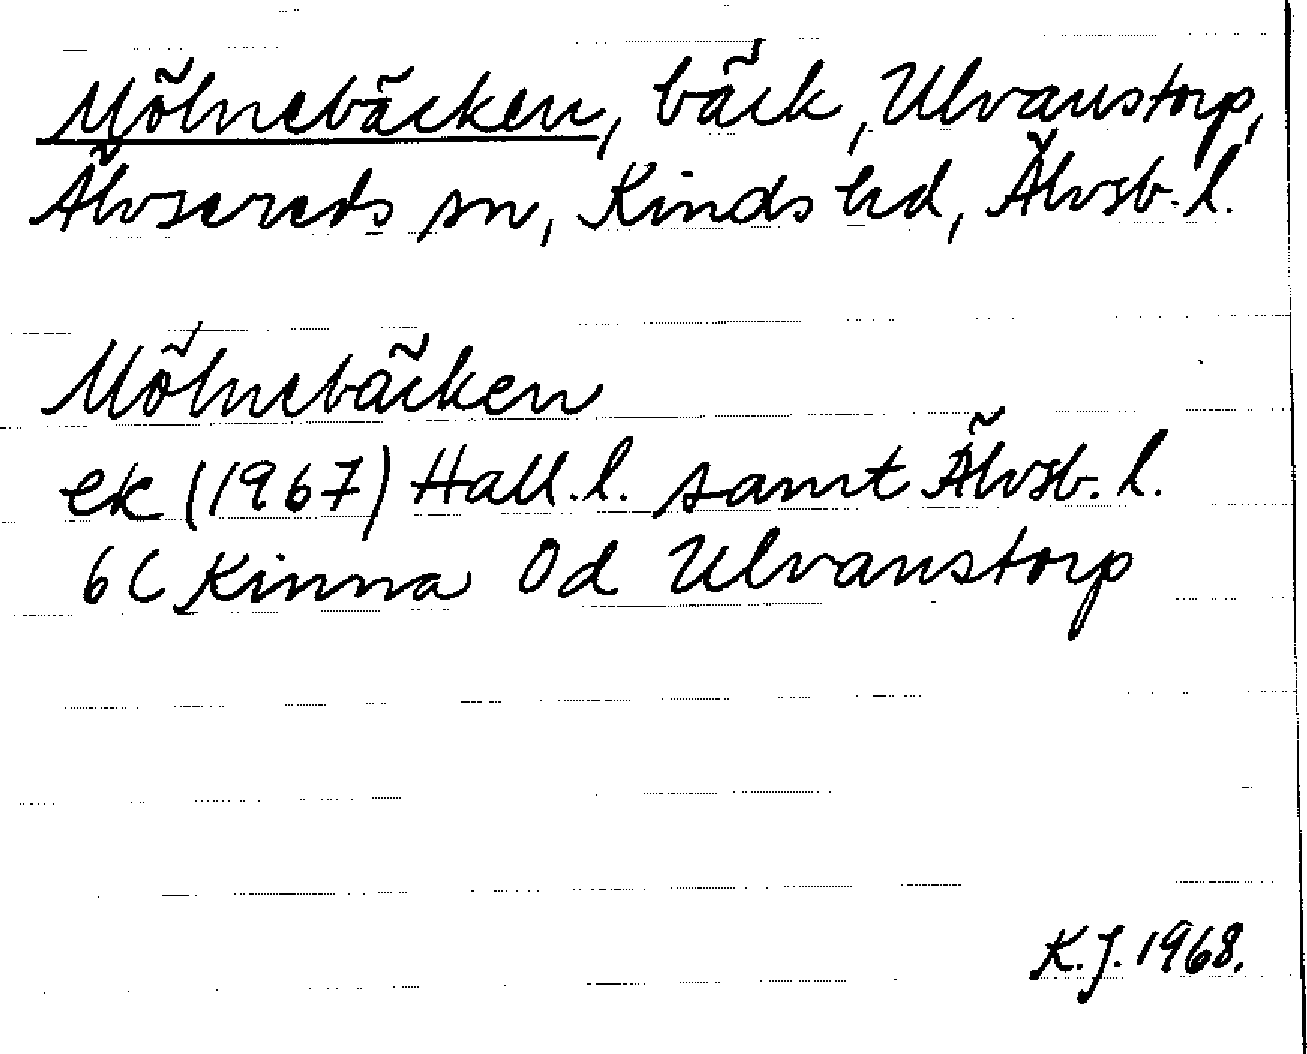 Mölnebäcken, bäck, Ulvanstorp,
Älvsereds sn, Kinds hd, Älvsb. l.
Mölnebäcken
ek (1967) Hall. l. samt Älvsb. l.
6C Kinna 0d Ulvanstorp
K.J. 1968.